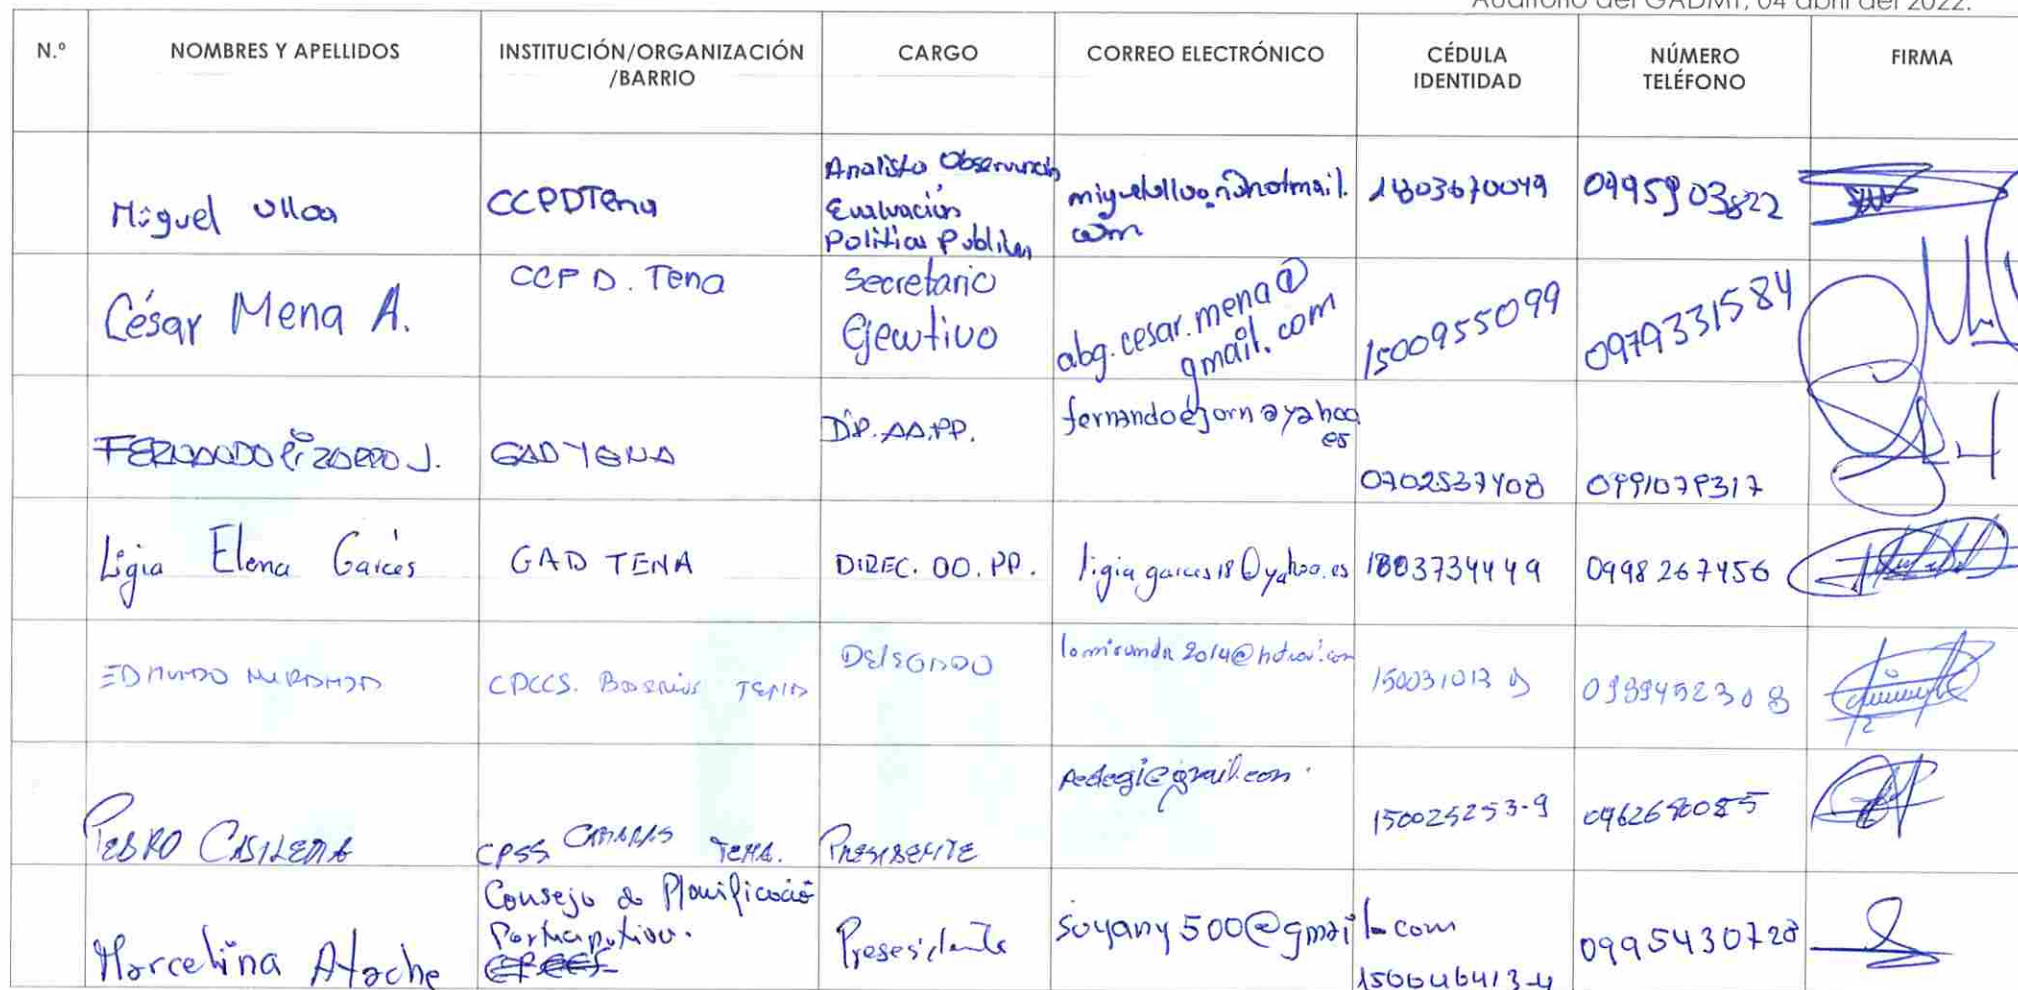 Auditorio del GADMT, 04 abril del 2022.
N.º NOMBRES Y APELLIDOS INSTITUCIÓN/ORGANIZACIÓN /BARRIO CARGO CORREO ELECTRÓNICO CÉDULA IDENTIDAD NÚMERO TELÉFONO FIRMA
Miguel Ulloa
CCPDTena
Analista Observancia
Evaluación
Politicas Publicas
com
0995903822
César Mena A.
CCPD. Tena
Secretario
Ejecutivo
abg.cesar.mena@
gmail.com
1500955099
0979331584
FERNANDO PIZARRO J.
GAD TENA
DIP. AA.PP.
fernandoejorn@yahoo
es
0702537408
0991079317
Ligia Elena Garcés
GAD TENA
DIREC. OO. PP.
ligiagarces18@yahoo.es
1803734449
0998267456
EDMUNDO MIRANDA
CPCCS. Barrios TENA
DELEGADO
PEDRO CASILEMA
TENA.
PRESIDENTE
150025253-9
Marcelina Atache
Consejo de Planificació
Participativa.
Presesidente
soyany500@gmail.com
0995430728